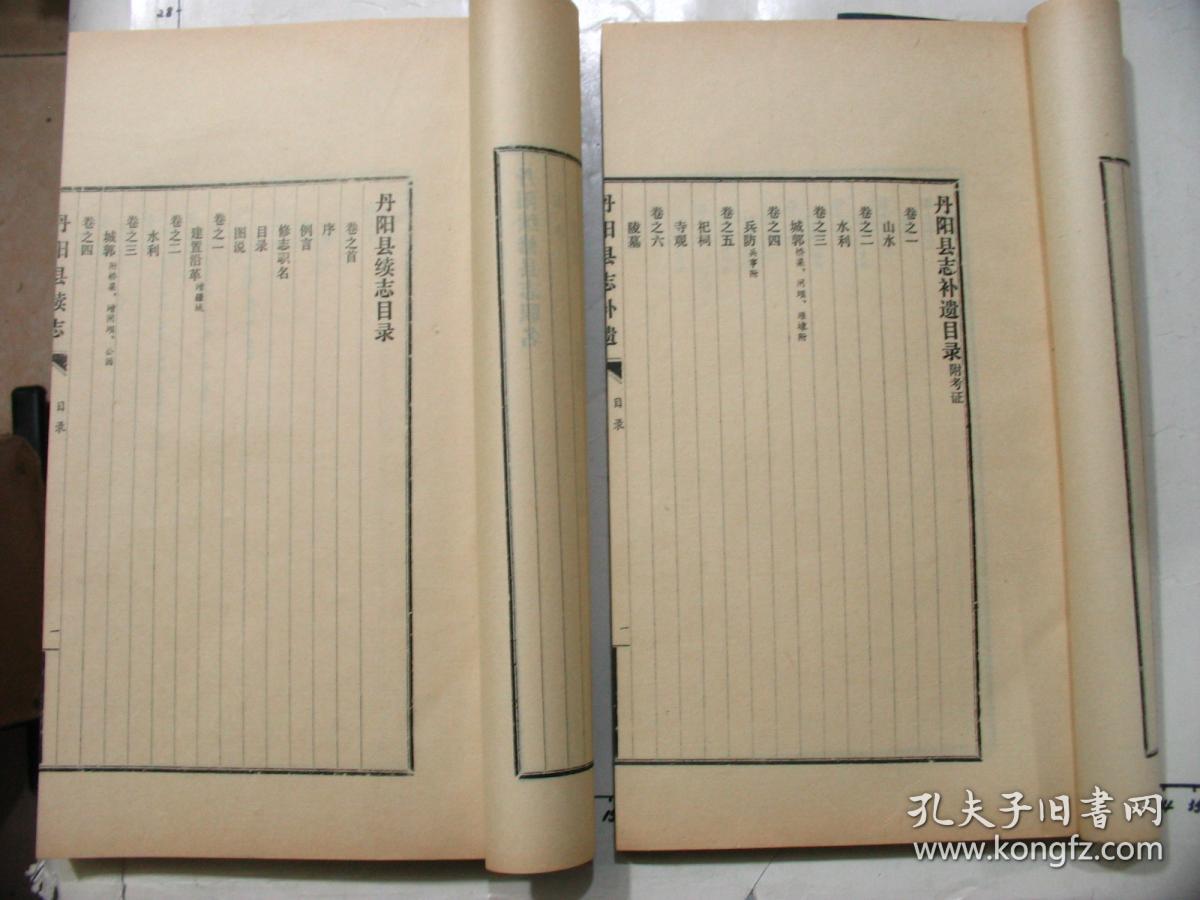 丹阳县志补遗目录 附考证
卷之一
山水
卷之二
水利
卷之三
城郭 桥梁、闸坝、堰埭附
卷之四
兵防 兵事附
卷之五
祀祠
寺观
卷之六
陵墓
丹阳县志补遗 目录 一
丹阳县续志目录
卷之首
序
例言
修志职名
目录
图说
卷之一
建置沿革 增疆域
卷之二
水利
卷之三
城郭 附桥梁、增闸坝、公园
卷之四
丹阳县续志 目录 一
孔夫子旧书网
www.kongfz.com